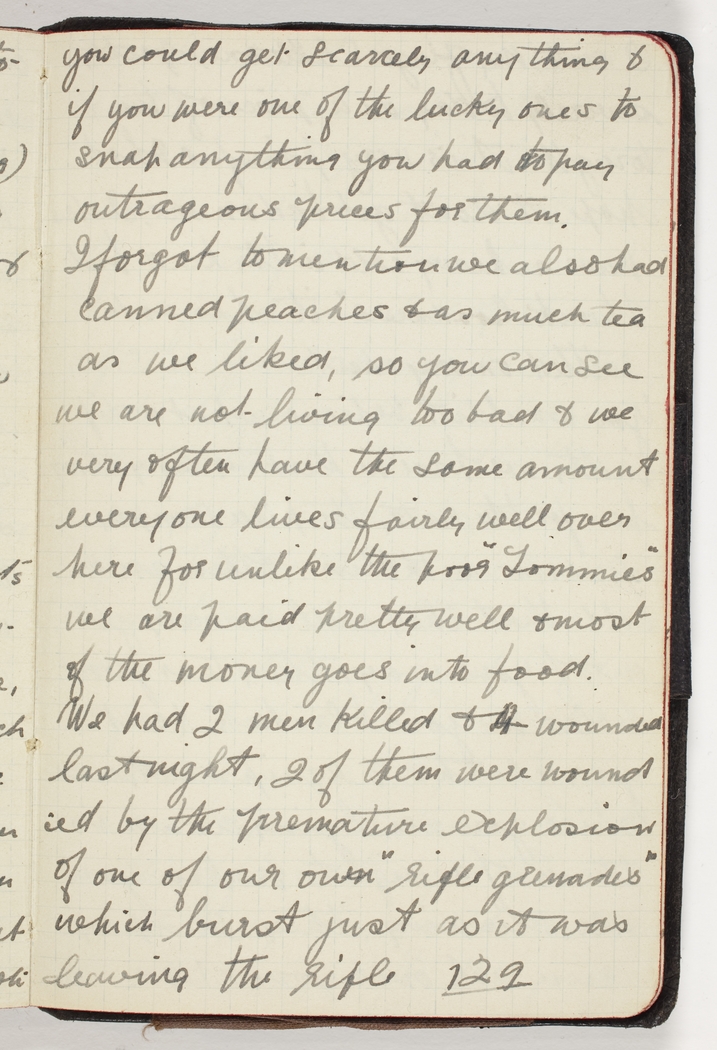 you could get scarcely any thing &
if you were one of the lucky ones to
snap anything you had to pay
outrageous prices for them.
I forgot to mention we also had
canned peaches & as much tea
as we liked, so you can see
we are not living too bad & we
very often have the same amount
everyone lives fairly well over
here for unlike the poor "Tommies"
we are paid pretty well & most
of the money goes into food.
We had 2 men killed & 4 wounded
last night, 2 of them were wound
ied by the premature explosion
of one of our own "rifle grenades"
which burst just as it was
leaving the rifle 129